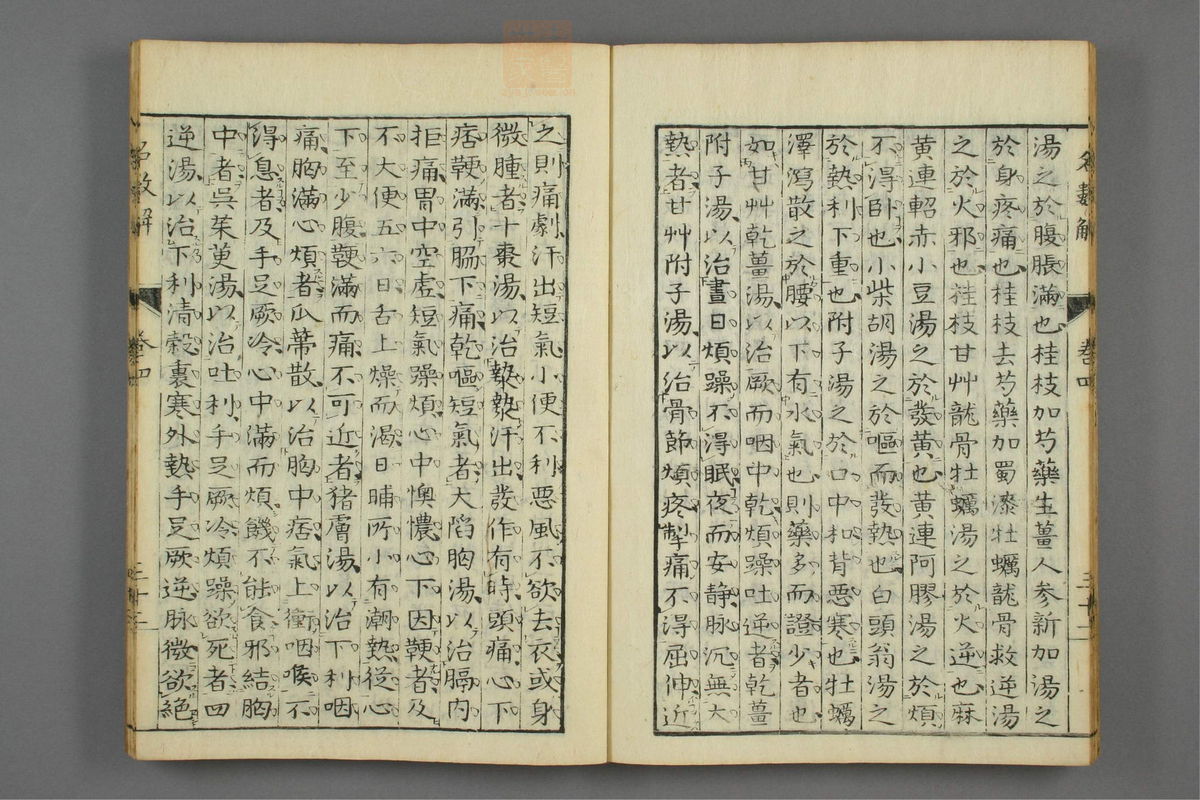 湯之於腹脹滿也桂枝加芍藥生薑人參新加湯之
於身疼痛也桂枝去芍藥加蜀漆牡蠣龍骨救逆湯
之於火邪也桂枝甘艸龍骨牡蠣湯之於火逆也麻
黄連軺赤小豆湯之於發黄也黄連阿膠湯之於煩
不得卧也小柴胡湯之於嘔而發熱也白頭翁湯之
於熱利下重也附子湯之於口中和背惡寒也牡蠣
澤瀉散之於腰以下有水氣也則藥多而證少者也
如甘艸乾薑湯以治厥而咽中乾煩躁吐逆者乾薑
附子湯以治晝日煩躁不得眠夜而安静脉沉無大
熱者甘艸附子湯以治骨節煩疼掣痛不得屈伸近
卷四
三十二
之則痛劇汗出短氣小便不利惡風不欲去衣或身
微腫者十棗湯以治漐漐汗出發作有時頭痛心下
痞鞕滿引脇下痛乾嘔短氣者大陷胸湯以治膈内
拒痛胃中空虚短氣躁煩心中懊憹心下因鞕者及
不大便五六日舌上燥而渴日晡所小有潮熱從心
下至少腹鞕滿而痛不可近者猪膚湯以治下利咽
痛胸滿心煩者瓜蔕散以治胸中痞氣上衝咽喉不
得息者及手足厥冷心中滿而煩饑不能食邪結胸
中者呉茱萸湯以治吐利手足厥冷煩躁欲死者四
逆湯以治下利清穀裏寒外熱手足厥逆脉微欲絶
卷四
三十三